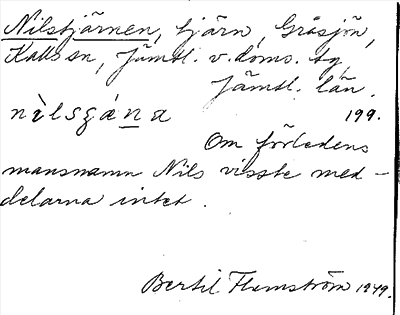 Nilstjärnen, tjärn, Gråsjön,
Kalls sn, Jämtl. v. doms. tg
Jämtl. län.
nìlsʂǽna 199.
Om förledens
mansnamn Nils visste med-
delarna intet.
Bertil Flemström 1949.